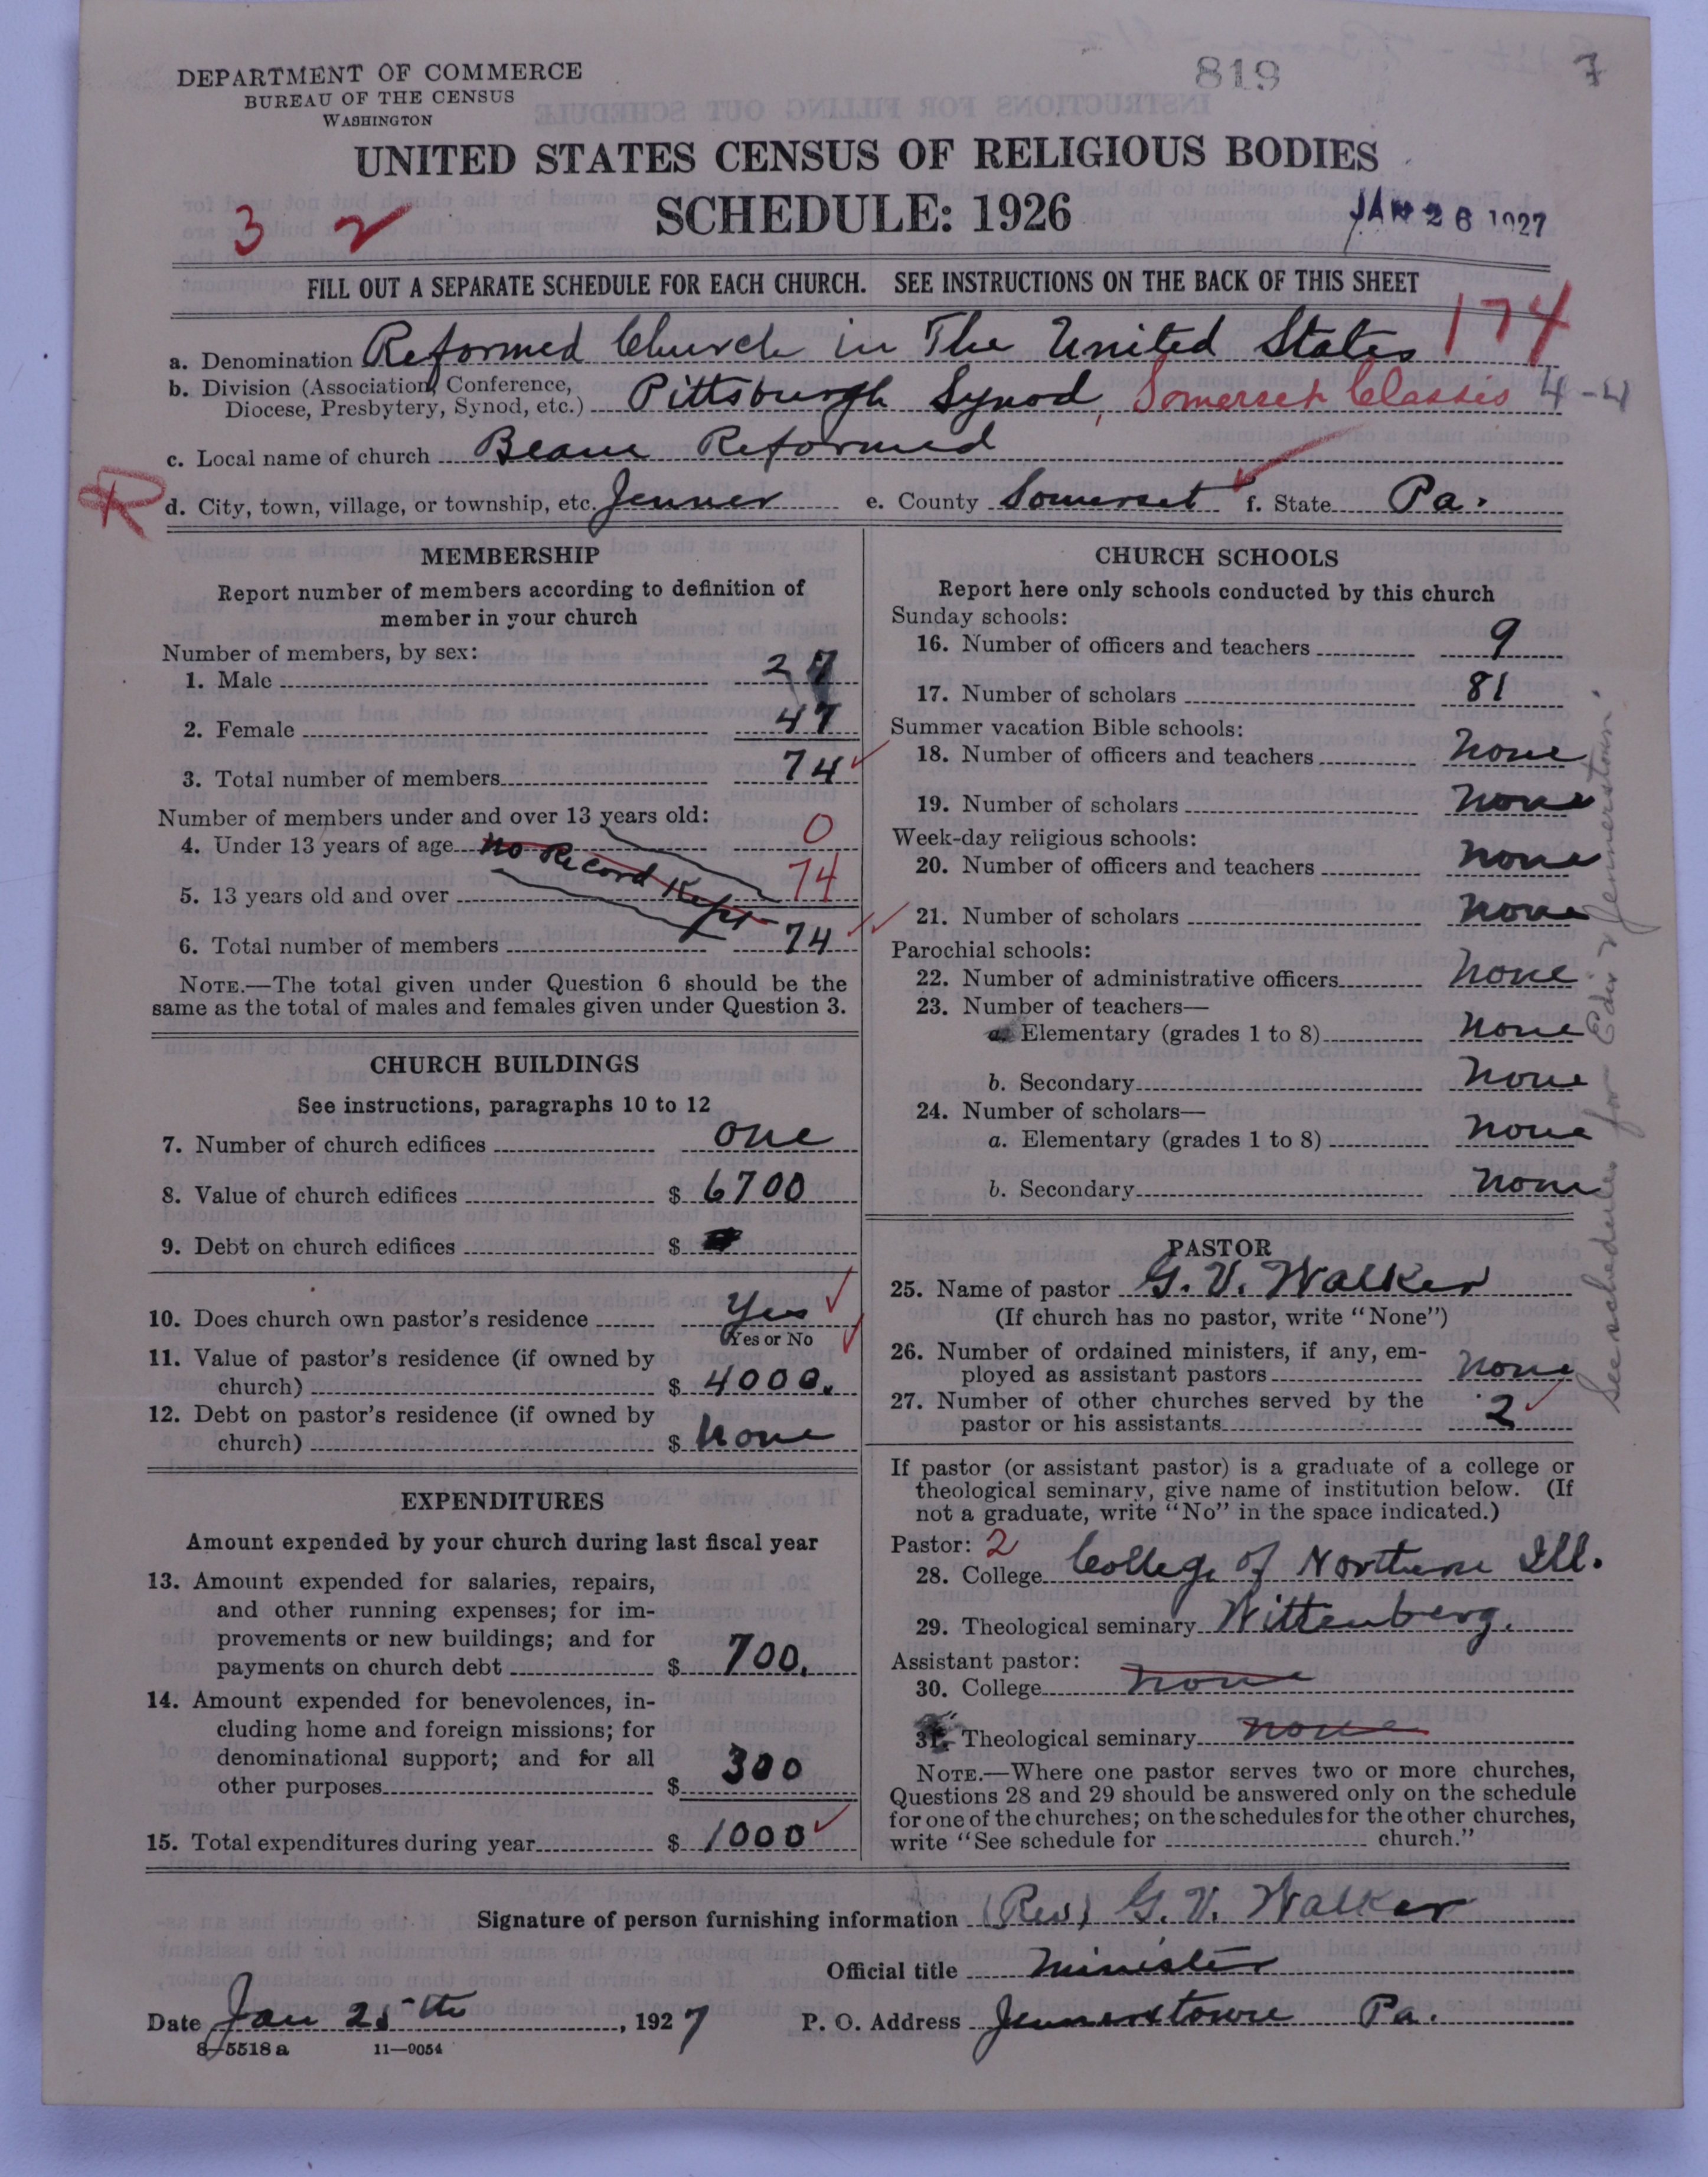 819
7
DEPARTMENT OF COMMERCE
BUREAU OF THE CENSUS
WASHINGTON
UNITED STATES CENSUS OF RELIGIOUS BODIES
SCHEDULE: 1926
3 2
JAN 26 1927
FILL OUT A SEPARATE SCHEDULE FOR EACH CHURCH. SEE INSTRUCTIONS ON THE BACK OF THIS SHEET
174
a. Denomination Reformed Church in The United States
b. Division (Association, Conference, Diocese, Presbytery, Synod, etc.) Pittsburgh Synod, Somerset Classis 4-4
c. Local name of church Beam Reformed
R
d. City, town, village, or township, etc. Jenner e. County Somerset f. State Pa.
MEMBERSHIP
Report number of members according to definition of
member in your church
Number of members, by sex:
1. Male 27
2. Female 47
3. Total number of members 74
Number of members under and over 13 years old:
4. Under 13 years of age 0
No Record Kept
5. 13 years old and over 74
6. Total number of members 74
NOTE.—The total given under Question 6 should be the
same as the total of males and females given under Question 3.
CHURCH BUILDINGS
See instructions, paragraphs 10 to 12
7. Number of church edifices one
8. Value of church edifices $ 6700
9. Debt on church edifices $
10. Does church own pastor's residence Yes
Yes or No
11. Value of pastor's residence (if owned by
church) $ 4000.
12. Debt on pastor's residence (if owned by
church) $ none
EXPENDITURES
Amount expended by your church during last fiscal year
13. Amount expended for salaries, repairs,
and other running expenses; for im-
provements or new buildings; and for
payments on church debt $ 700.
14. Amount expended for benevolences, in-
cluding home and foreign missions; for
denominational support; and for all
other purposes $ 300
15. Total expenditures during year $ 1000
CHURCH SCHOOLS
Report here only schools conducted by this church
Sunday schools:
16. Number of officers and teachers 9
17. Number of scholars 81
Summer vacation Bible schools:
18. Number of officers and teachers none
19. Number of scholars none
Week-day religious schools:
20. Number of officers and teachers none
21. Number of scholars none
Parochial schools:
22. Number of administrative officers none
23. Number of teachers—
a. Elementary (grades 1 to 8) none
b. Secondary none
24. Number of scholars—
a. Elementary (grades 1 to 8) none
b. Secondary none
PASTOR
25. Name of pastor G. V. Walker
(If church has no pastor, write "None")
26. Number of ordained ministers, if any, em-
ployed as assistant pastors none
27. Number of other churches served by the
pastor or his assistants 2
If pastor (or assistant pastor) is a graduate of a college or
theological seminary, give name of institution below. (If
not a graduate, write "No" in the space indicated.)
Pastor: 2
28. College College of Northern Ill.
29. Theological seminary Wittenberg.
Assistant pastor:
30. College none
31. Theological seminary none
NOTE.—Where one pastor serves two or more churches,
Questions 28 and 29 should be answered only on the schedule
for one of the churches; on the schedules for the other churches,
write "See schedule for church."
See schedules for Edie & Jennerstown.
Signature of person furnishing information (Rev) G. V. Walker
Official title Minister
Date Jan 25th, 1927 P. O. Address Jennerstown Pa.
8-5518a 11—9054